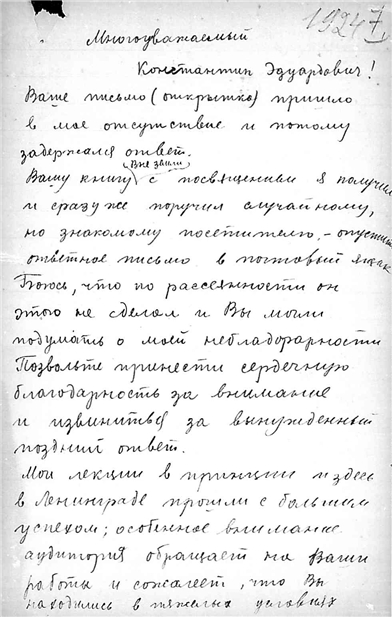 1924 г
Многоуважаемый
Константин Эдуардович!
Ваше письмо (открытка) пришло
в мое отсутствие и потому
задержался ответ.
Вне земли
Вашу книгу с посвящением я получил
и сразу же поручил случайному,
но знакомому посетителю, – опустить
ответное письмо в почтовый ящик
Боюсь, что по рассеянности он
этого не сделал и Вы могли
подумать о моей неблагодарности
Позвольте принести сердечную
благодарность за внимание
и извиниться за вынужденный
поздний ответ.
Мои лекции в провинции и здесь
в Ленинграде прошли с большим
успехом; особенное внимание
аудитория обращает на Ваши
работы и сожалеет, что Вы
находились в тяжелых условиях